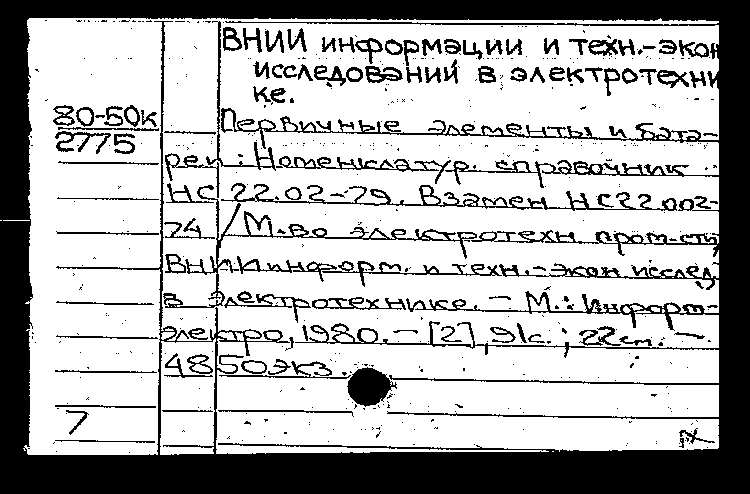 ВНИИ информации и техн.-экон
исследований в электротехни
ке.
80-50к
2775
Первичные элементы и бата-
реи : Номенклатур. справочник
НС 22.02-79. Взамен НС22.002-
74 / М-во электротехн. пром-сти,
ВНИИинформ. и техн.-экон. исслед.
в электротехнике. - М.: Информ-
электро, 1980. - [2], 91с. ; 22см. -
4850экз.
7